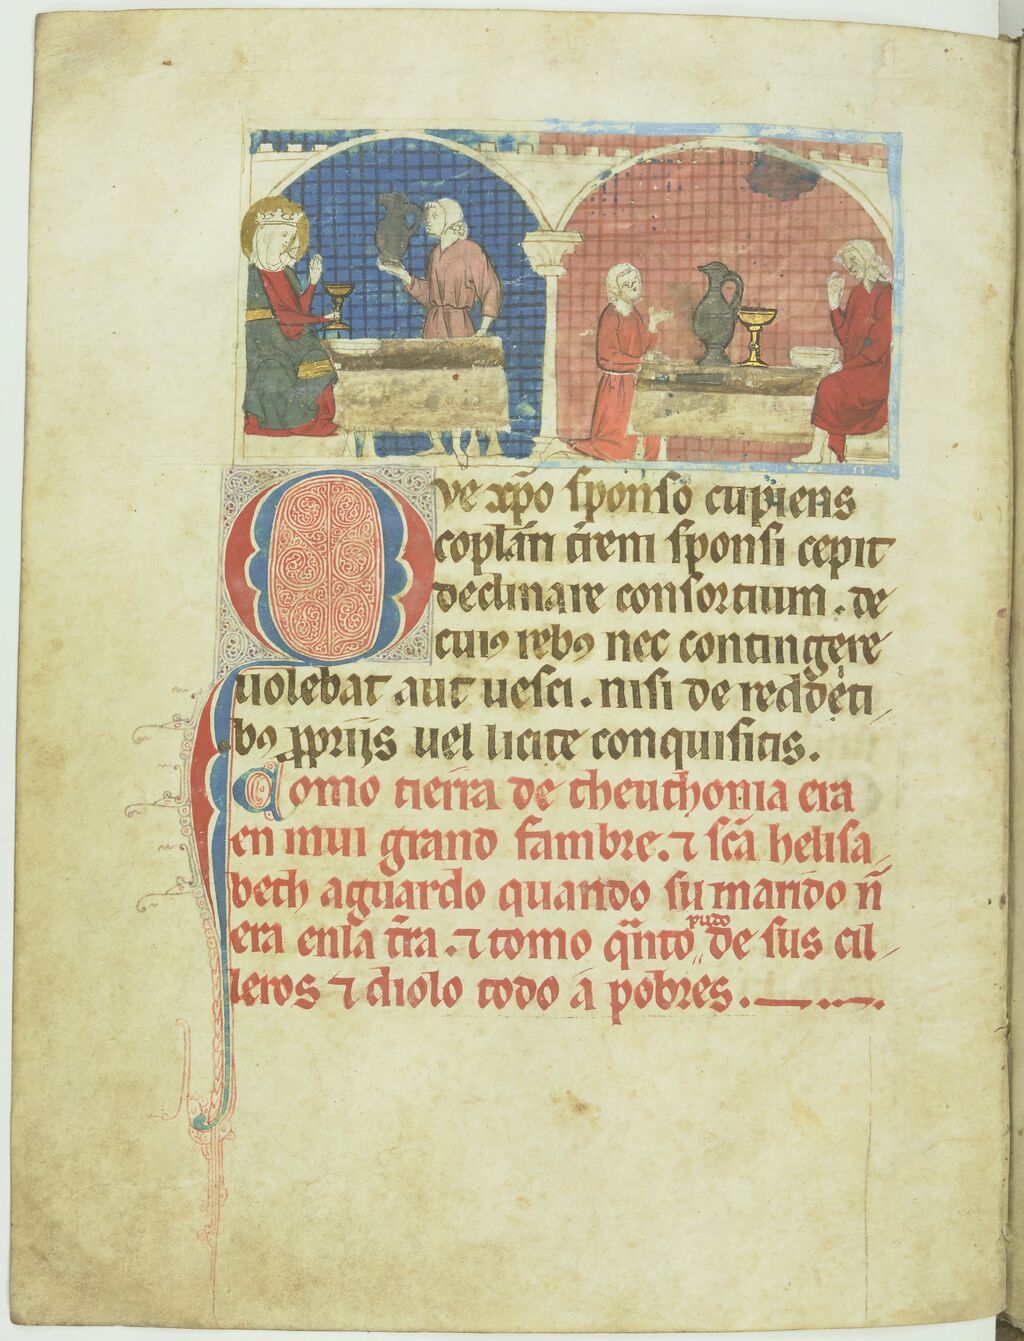 Que xp̄o sponso cupiens
coplān t̄reni sponsi cepit
declinare consortium. de
cuiꝰ rebꝰ nec contingere
uolebat aut uesci. nisi de reddēti
bꝰ ꝓprijs uel licite conquisitis.
Como tierra de theuthonia era
en mui grand fambre. ⁊ sc̄a helisa
beth aguardo quando su marido ñ
era enla t̄ra. ⁊ tomo qn̄to pudo de sus cil
leros ⁊ diolo todo á pobres.